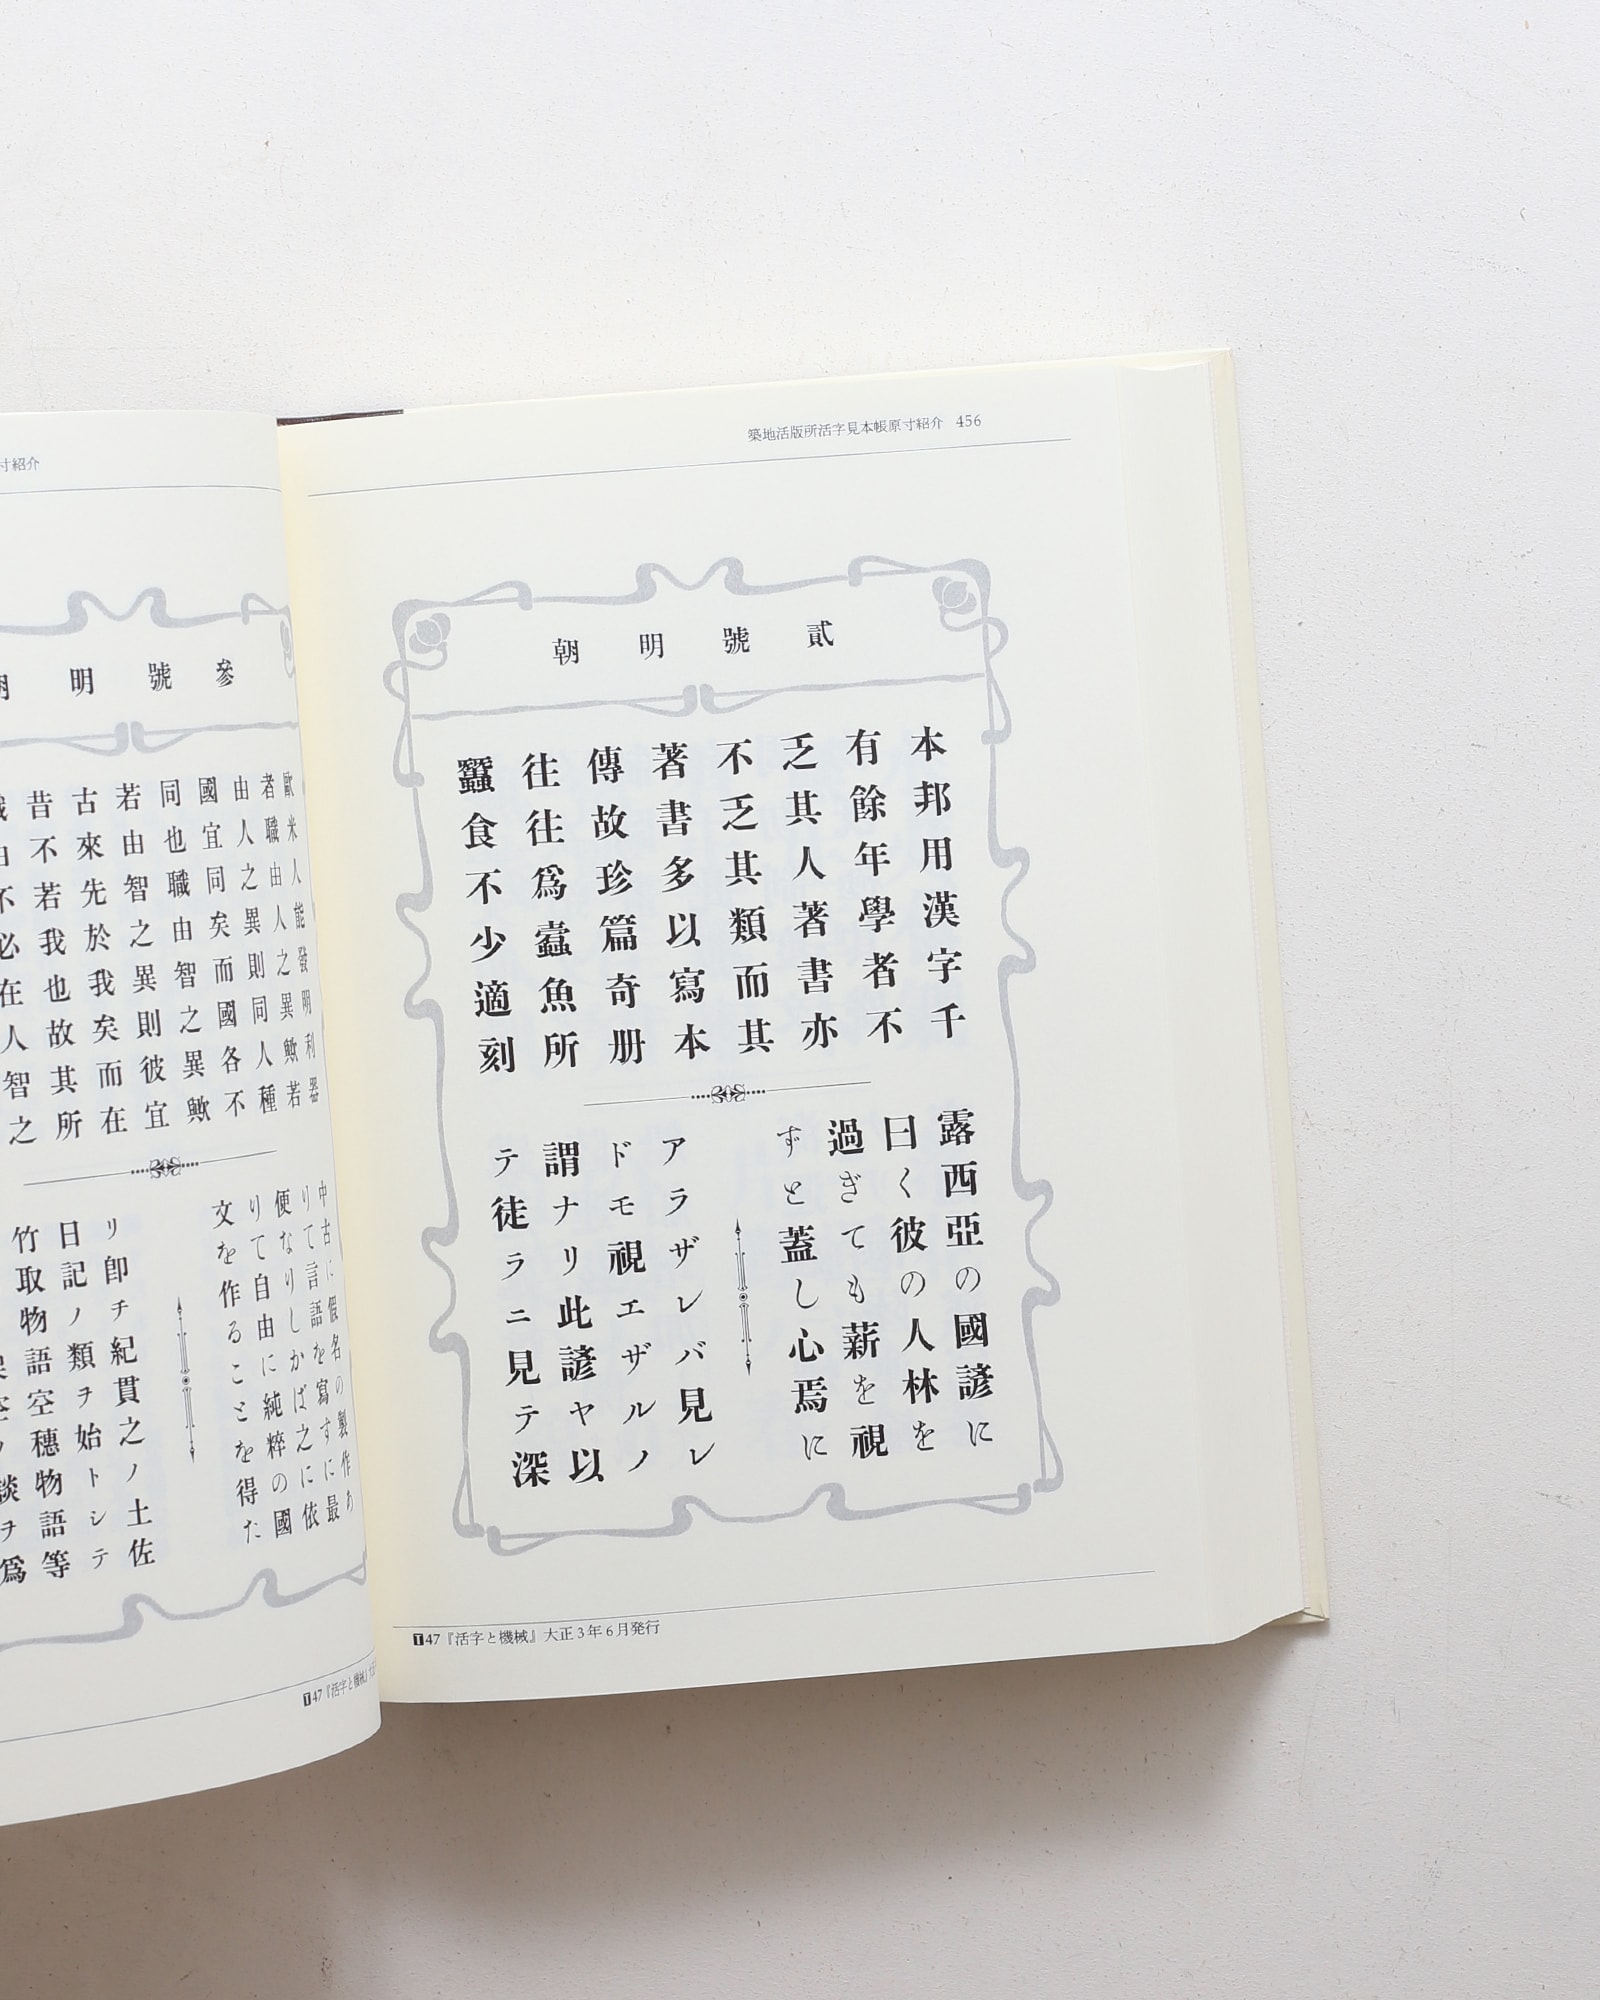 寸紹介
參號明
歐米人能發明利器
者職由人之異歟若
由人之異則同人種
國宜同矣而國各不
同也職由智之異歟
若由智之異則彼宜
古來先於我矣而在
昔不若我也故其所
不必在人智之
中古に假名の製作あ
りて言語を寫すに最
便なりしかば之に依
りて自由に純粹の國
文を作ることを得た
リ卽チ紀貫之ノ土佐
日記ノ類ヲ始トシテ
竹取物語空穗物語等
談ヲ爲
T47『活字と機械』大正
築地活版所活字見本帳原寸紹介 456
貳號明朝
本邦用漢字千
有餘年學者不
乏其人著書亦
不乏其類而其
著書多以寫本
傳故珍篇奇册
往往爲蠹魚所
蠶食不少適刻
露西亞の國諺に
曰く彼の人林を
過ぎても薪を視
ずと蓋し心焉に
アラザレバ見レ
ドモ視エザルノ
謂ナリ此諺ヤ以
テ徒ラニ見テ深
T47『活字と機械』大正3年6月発行